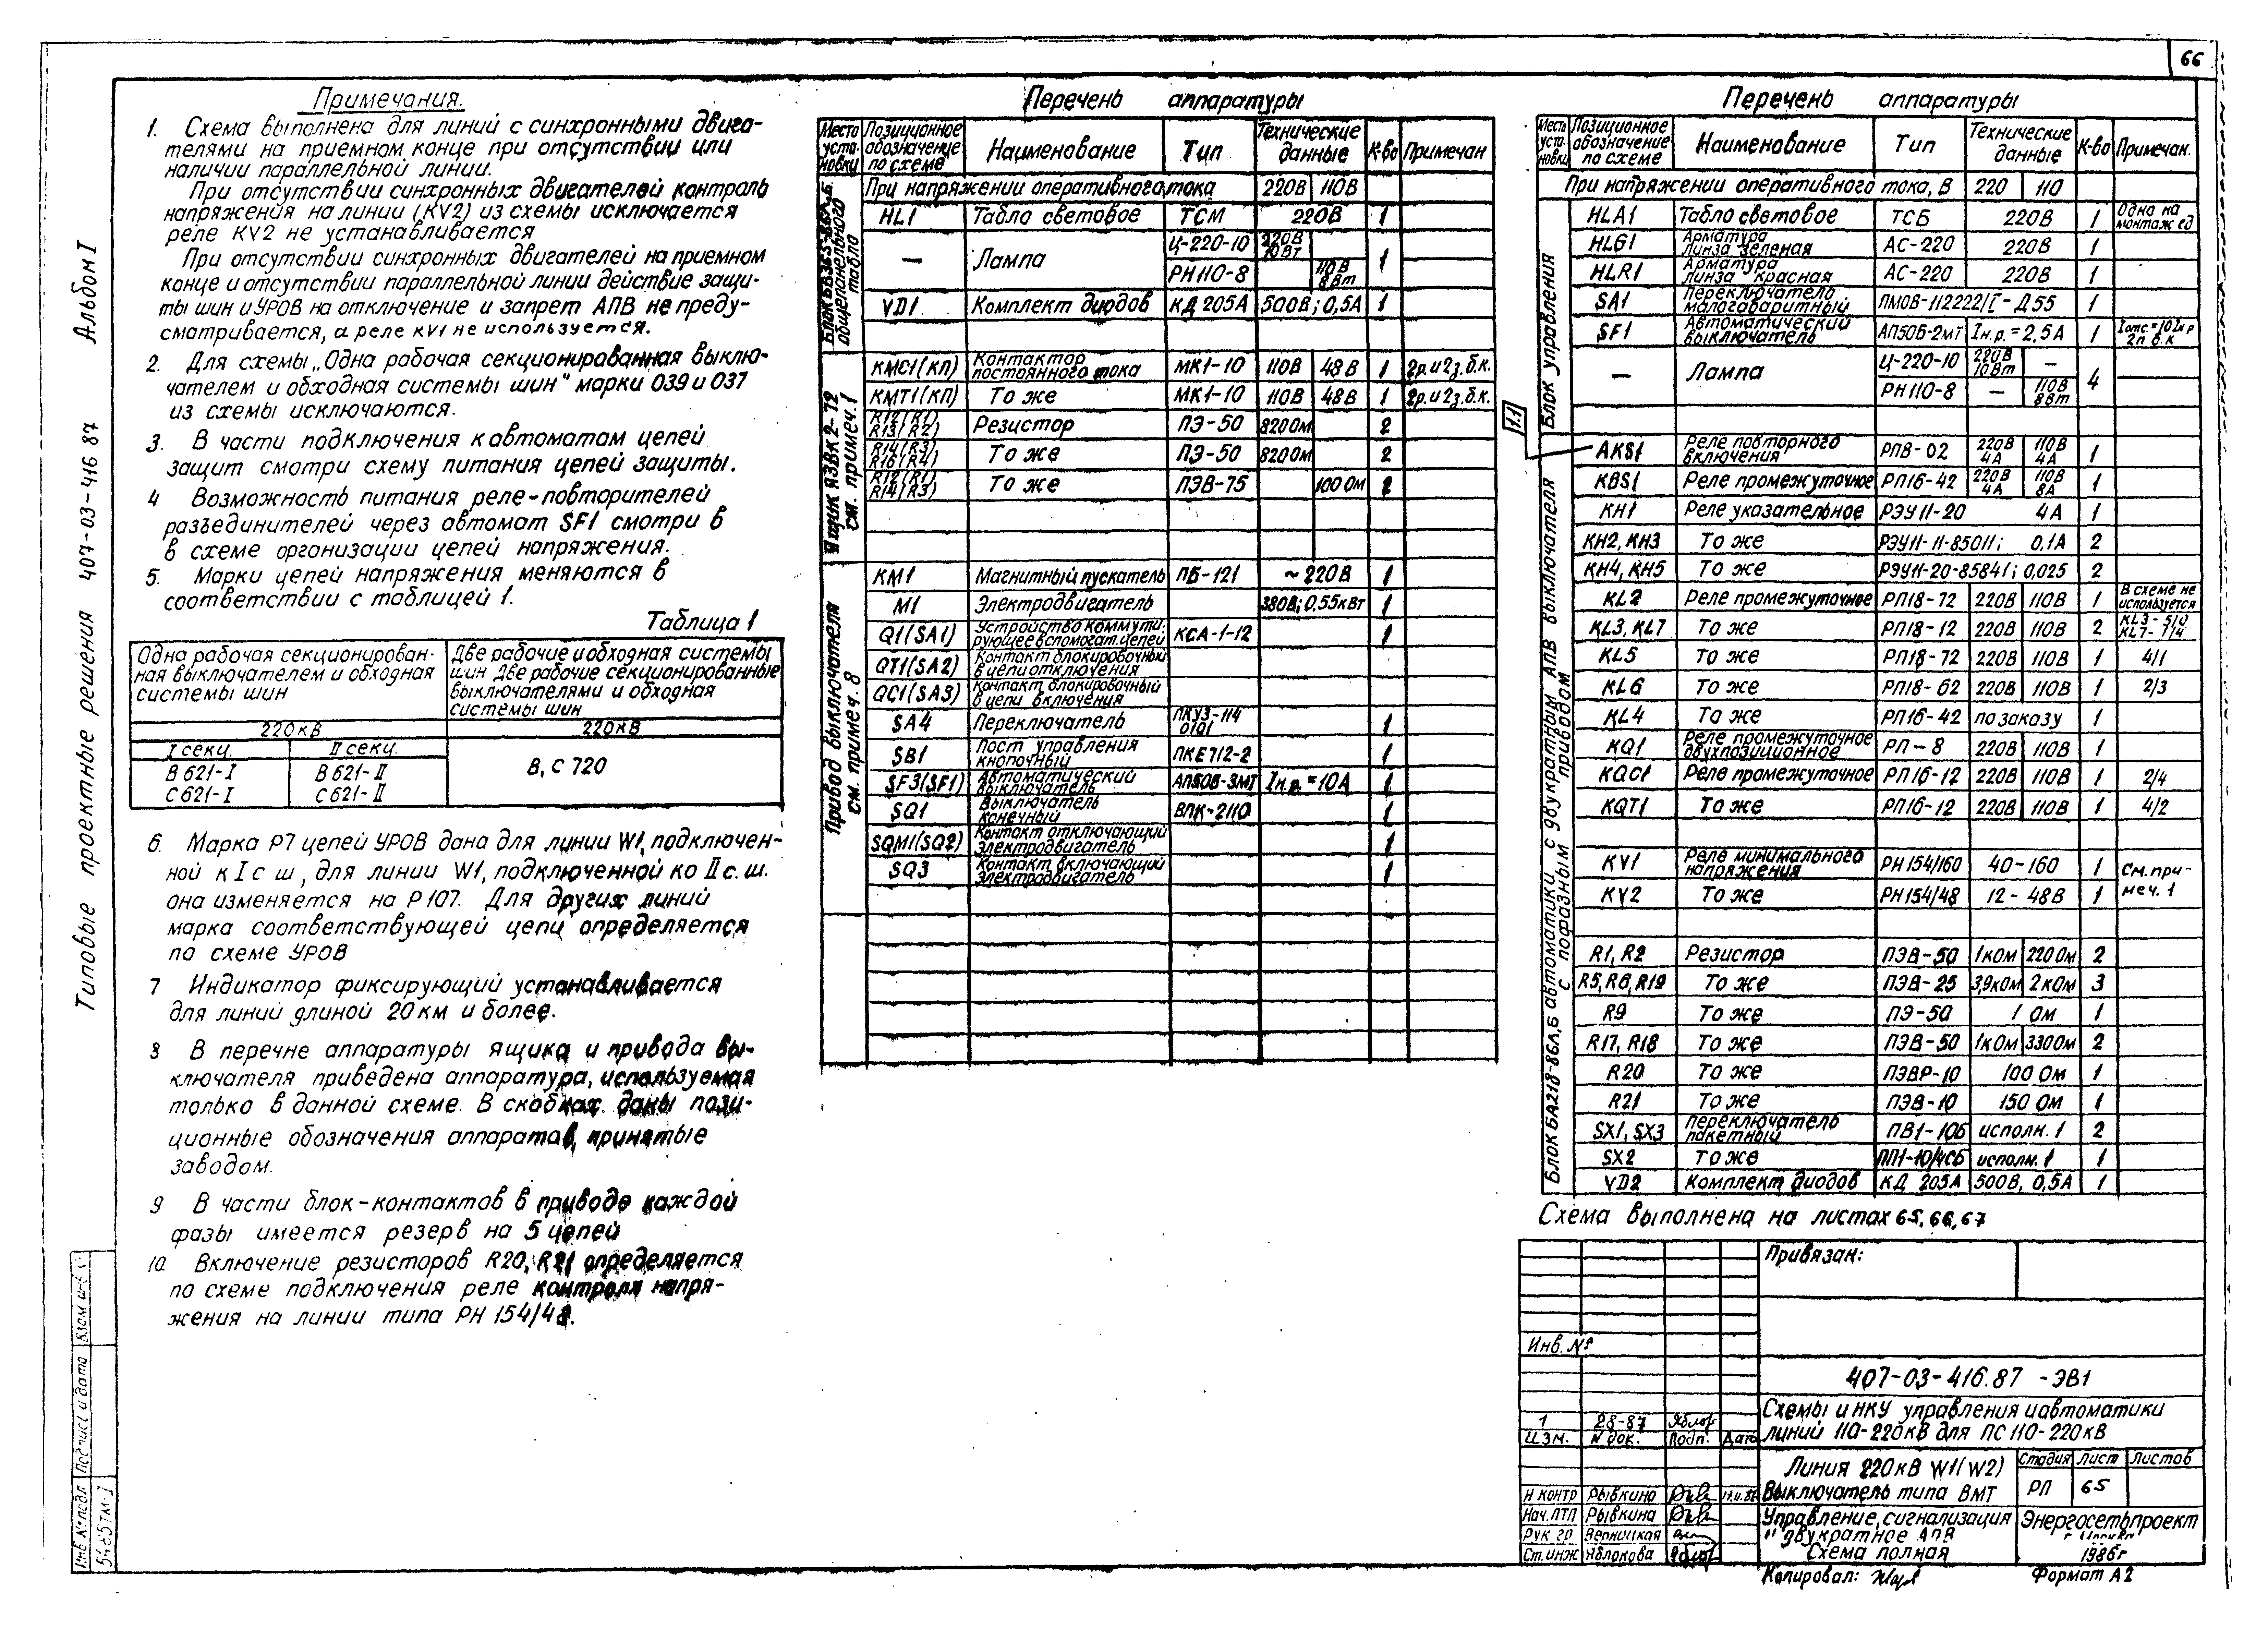 66
Типовые проектные решения 407-03-416 87 Альбом I
Примечания.
1. Схема выполнена для линий с синхронными двига-
телями на приемном конце при отсутствии или
наличии параллельной линии.
При отсутствии синхронных двигателей контроль
напряжения на линии (KV2) из схемы исключается
реле KV2 не устанавливается
При отсутствии синхронных двигателей на приемном
конце и отсутствии параллельной линии действие защи-
ты шин и УРОВ на отключение и запрет АПВ не преду-
сматривается, а реле KV1 не используется.
2. Для схемы „Одна рабочая секционированная выклю-
чателем и обходная системы шин" марки 039 и 037
из схемы исключаются.
3. В части подключения к автоматам цепей
защит смотри схему питания цепей защиты.
4 Возможность питания реле-повторителей
разъединителей через автомат SF1 смотри в
в схеме организации цепей напряжения.
5. Марки цепей напряжения меняются в
соответствии с таблицей 1.
Таблица 1
Одна рабочая секционирован-
ная выключателем и обходная
системы шин
Две рабочие и обходная системы
шин Две рабочие секционированные
выключателями и обходная
системы шин
220кВ 220кВ
I секц. II секц.
В 621-I В 621-II В, С 720
С 621-I С 621-II
6. Марка Р7 цепей УРОВ дана для линии W1, подключен-
ной к I с ш, для линии W1, подключенной ко II с. ш.
она изменяется на Р107. Для других линий
марка соответствующей цепи определяется
по схеме УРОВ
7 Индикатор фиксирующий устанавливается
для линий длиной 20 км и более.
8 В перечне аппаратуры ящика и привода вы-
ключателя приведена аппаратура, используемая
только в данной схеме. В скобках даны пози-
ционные обозначения аппаратов, принятые
заводом.
9 В части блок-контактов в приводе каждой
фазы имеется резерв на 5 цепей
10. Включение резисторов R20, R21 определяется
по схеме подключения реле контроля напря-
жения на линии типа РН 154/48.
Перечень аппаратуры
Место установки Позиционное обозначение по схеме Наименование Тип Технические данные К-во Примечан
При напряжении оперативного тока 220В 110В
общепанельного табло
HL1 Табло световое ТСМ 220В 1
— Лампа Ц-220-10 220В 10Вт 1
РН110-8 110В 8Вт
VD1 Комплект диодов КД 205А 500В; 0,5А 1
Ящик ЯЗВК2-72 см. примеч. 1
KMC1(КП) Контактор постоянного тока МК1-10 110В 48В 1 2р. и 2з. б.к.
KMT1(КП) То же МК1-10 110В 48В 1 2р. и 2з. б.к.
R12(R1) R13(R2) Резистор ПЭ-50 820Ом 2
R14(R3) R16(R4) То же ПЭ-50 820Ом 2
R12(R1) R14(R3) То же ПЭВ-75 100Ом 2
Привод выключателя см. примеч. 8
KM1 Магнитный пускатель ПБ-121 ~220В 1
M1 Электродвигатель 380В; 0,55кВт 1
Q1(SA1) Устройство коммути. рующее вспомогат. цепей КСА-1-12 1
QT1(SA2) Контакт блокировочный в цепи отключения
QC1(SA3) Контакт блокировочный в цепи включения
SA4 Переключатель ПКУ3-114 0101 1
SB1 Пост управления кнопочный ПКЕ712-2 1
SF3(SF1) Автоматический выключатель АП50В-3МТ Iн.р.=10А 1
SQ1 Выключатель конечный ВПК-2110 1
SQM1(SQ2) Контакт отключающий электродвигатель 1
SQ3 Контакт включающий электродвигатель 1
Перечень аппаратуры
Место установки Позиционное обозначение по схеме Наименование Тип Технические данные К-во Примечан.
При напряжении оперативного тока, В 220 110
Блок управления
HLA1 Табло световое ТСБ 220В 1 Одна на монтаж ед
HLG1 Арматура линза зеленая АС-220 220В 1
HLR1 Арматура линза красная АС-220 220В 1
SA1 Переключатель малогабаритный ПМОВ-112222/I-Д55 1
SF1 Автоматический выключатель АП50Б-2МТ Iн.р.=2,5А 1 Iотс.=10Iн р 2п б.к
— Лампа Ц-220-10 220В 10Вт — 4
РН110-8 — 110В 8Вт
1.1
Блок БА218-86А,Б автоматики с двукратным АПВ выключателя с пофазным приводом
AKS1 Реле повторного включения РПВ-02 220В 4А 110В 4А 1
KBS1 Реле промежуточное РП16-42 220В 4А 110В 8А 1
KH1 Реле указательное РЭУ11-20 4А 1
KH2, KH3 То же РЭУ11-11-85011; 0,1А 2
KH4, KH5 То же РЭУ11-20-85841; 0,025 2
KL2 Реле промежуточное РП18-72 220В 110В 1 В схеме не используется
KL3, KL7 То же РП18-12 220В 110В 2 KL3-5/0 KL7-1/4
KL5 То же РП18-72 220В 110В 1 4/1
KL6 То же РП18-62 220В 110В 1 2/3
KL4 То же РП16-42 по заказу 1
KQ1 Реле промежуточное двухпозиционное РП-8 220В 110В 1
KQC1 Реле промежуточное РП16-12 220В 110В 1 2/4
KQT1 То же РП16-12 220В 110В 1 4/2
KV1 Реле минимального напряжения РН154/160 40-160 1 См. при-
KV2 То же РН154/48 12-48В 1 меч. 1
R1, R2 Резистор ПЭВ-50 1кОм 220Ом 2
R5, R6, R19 То же ПЭВ-25 3,9кОм 2кОм 3
R9 То же ПЭ-50 1 Ом 1
R17, R18 То же ПЭВ-50 1кОм 330Ом 2
R20 То же ПЭВР-10 100 Ом 1
R21 То же ПЭВ-10 150 Ом 1
SX1, SX3 Переключатель пакетный ПВ1-10Б исполн. 1 2
SX2 То же ПП1-10/4СБ исполн. 1 1
VD2 Комплект диодов КД 205А 500В, 0,5А 1
Схема выполнена на листах 65, 66, 67
Привязан:
Инв. №
407-03-416.87 -ЭВ1
Схемы и НКУ управления и автоматики
линий 110-220кВ для ПС 110-220кВ
1 28-87
Изм. N док. Подп. Дата
Линия 220кВ W1(W2)
Выключатель типа ВМТ
Стадия Лист Листов
РП 65
Н контр Рывкина
Нач. ПТП Рывкина
Рук гр Верницкая
Ст. инж Яблокова
Управление, сигнализация
и двукратное АПВ
Схема полная
Энергосетьпроект
1986г
Копировал:
Формат А2
Инв № подл Подпись и дата Взам инв №
5485тм-I